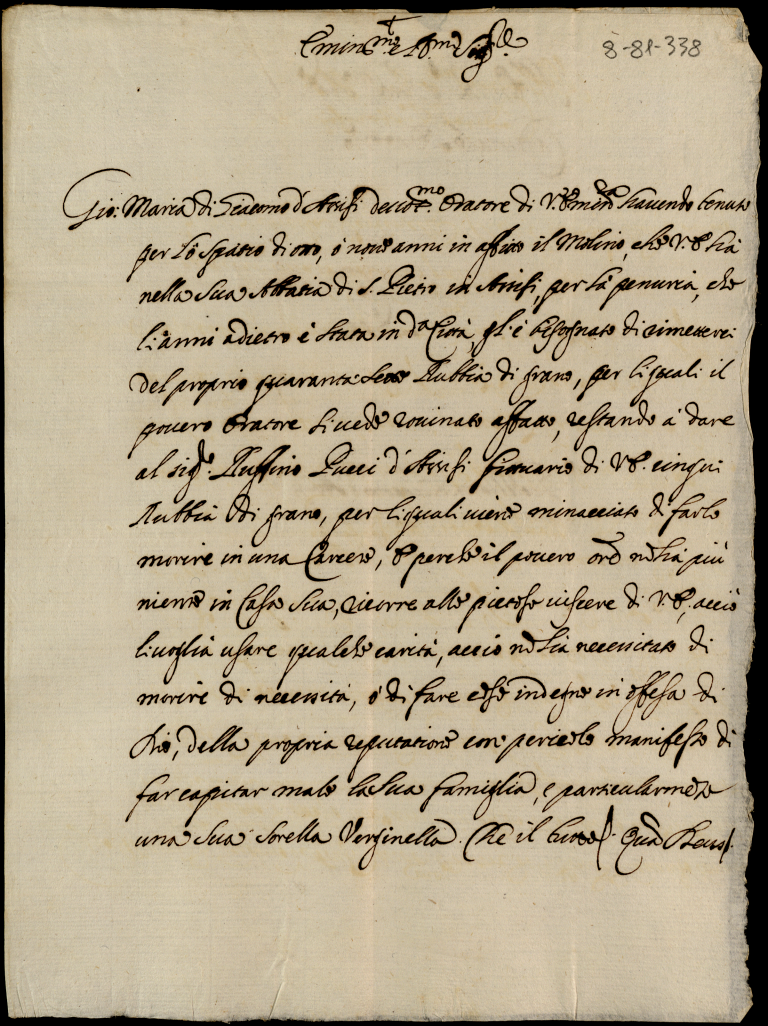 Emin.mo e R.mo Sig.re
8-81-338
Gio: Maria di Giacomo d'Assisi devot.mo Oratore di V. Em.za havendo tenuto
per lo spatio di otto, ò nove anni in affitto il Molino, che V.E. hà
nella sua Abbatia di S. Pietro in Assisi, per la penuria, che
li anni adietro è stata in d.a Città, gl'è bisognato di rimetterci
del proprio quaranta sette Rubbia di grano, per li quali il
povero Oratore si vede rovinato affatto, restando à dare
al sig.r Ruffino Pucci d'Assisi fittuario di V.E. cinqui
Rubbia di grano, per li quali viene minacciato di farlo
morire in una Carcere, E perche il povero Or.e nõ hà più
niente in Casa sua, ricorre alle pietose viscere di V.E., acciò
li voglia usare qualche carità, acciò nõ sia necessitato di
morire di necessità, ò di fare cose indegne in offesa di
Dio, della propria reputatione con pericolo manifesto di
far capitar male la sua famiglia, e particularmẽte
una sua sorella Verginella. Che il tutto/. Quã Deus/.